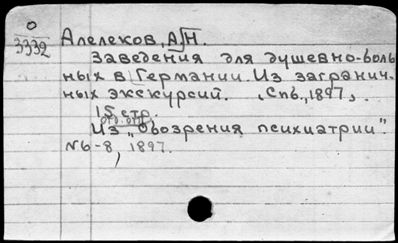 О
3332
Алелеков, А.Н.
Заведения для душевно-боль
ных в Германии. Из загранич-
ных экскурсий. Спб., 1897,
15 стр.
отд. отт.
Из "Обозрения психиатрии".
№6-8, 1897.